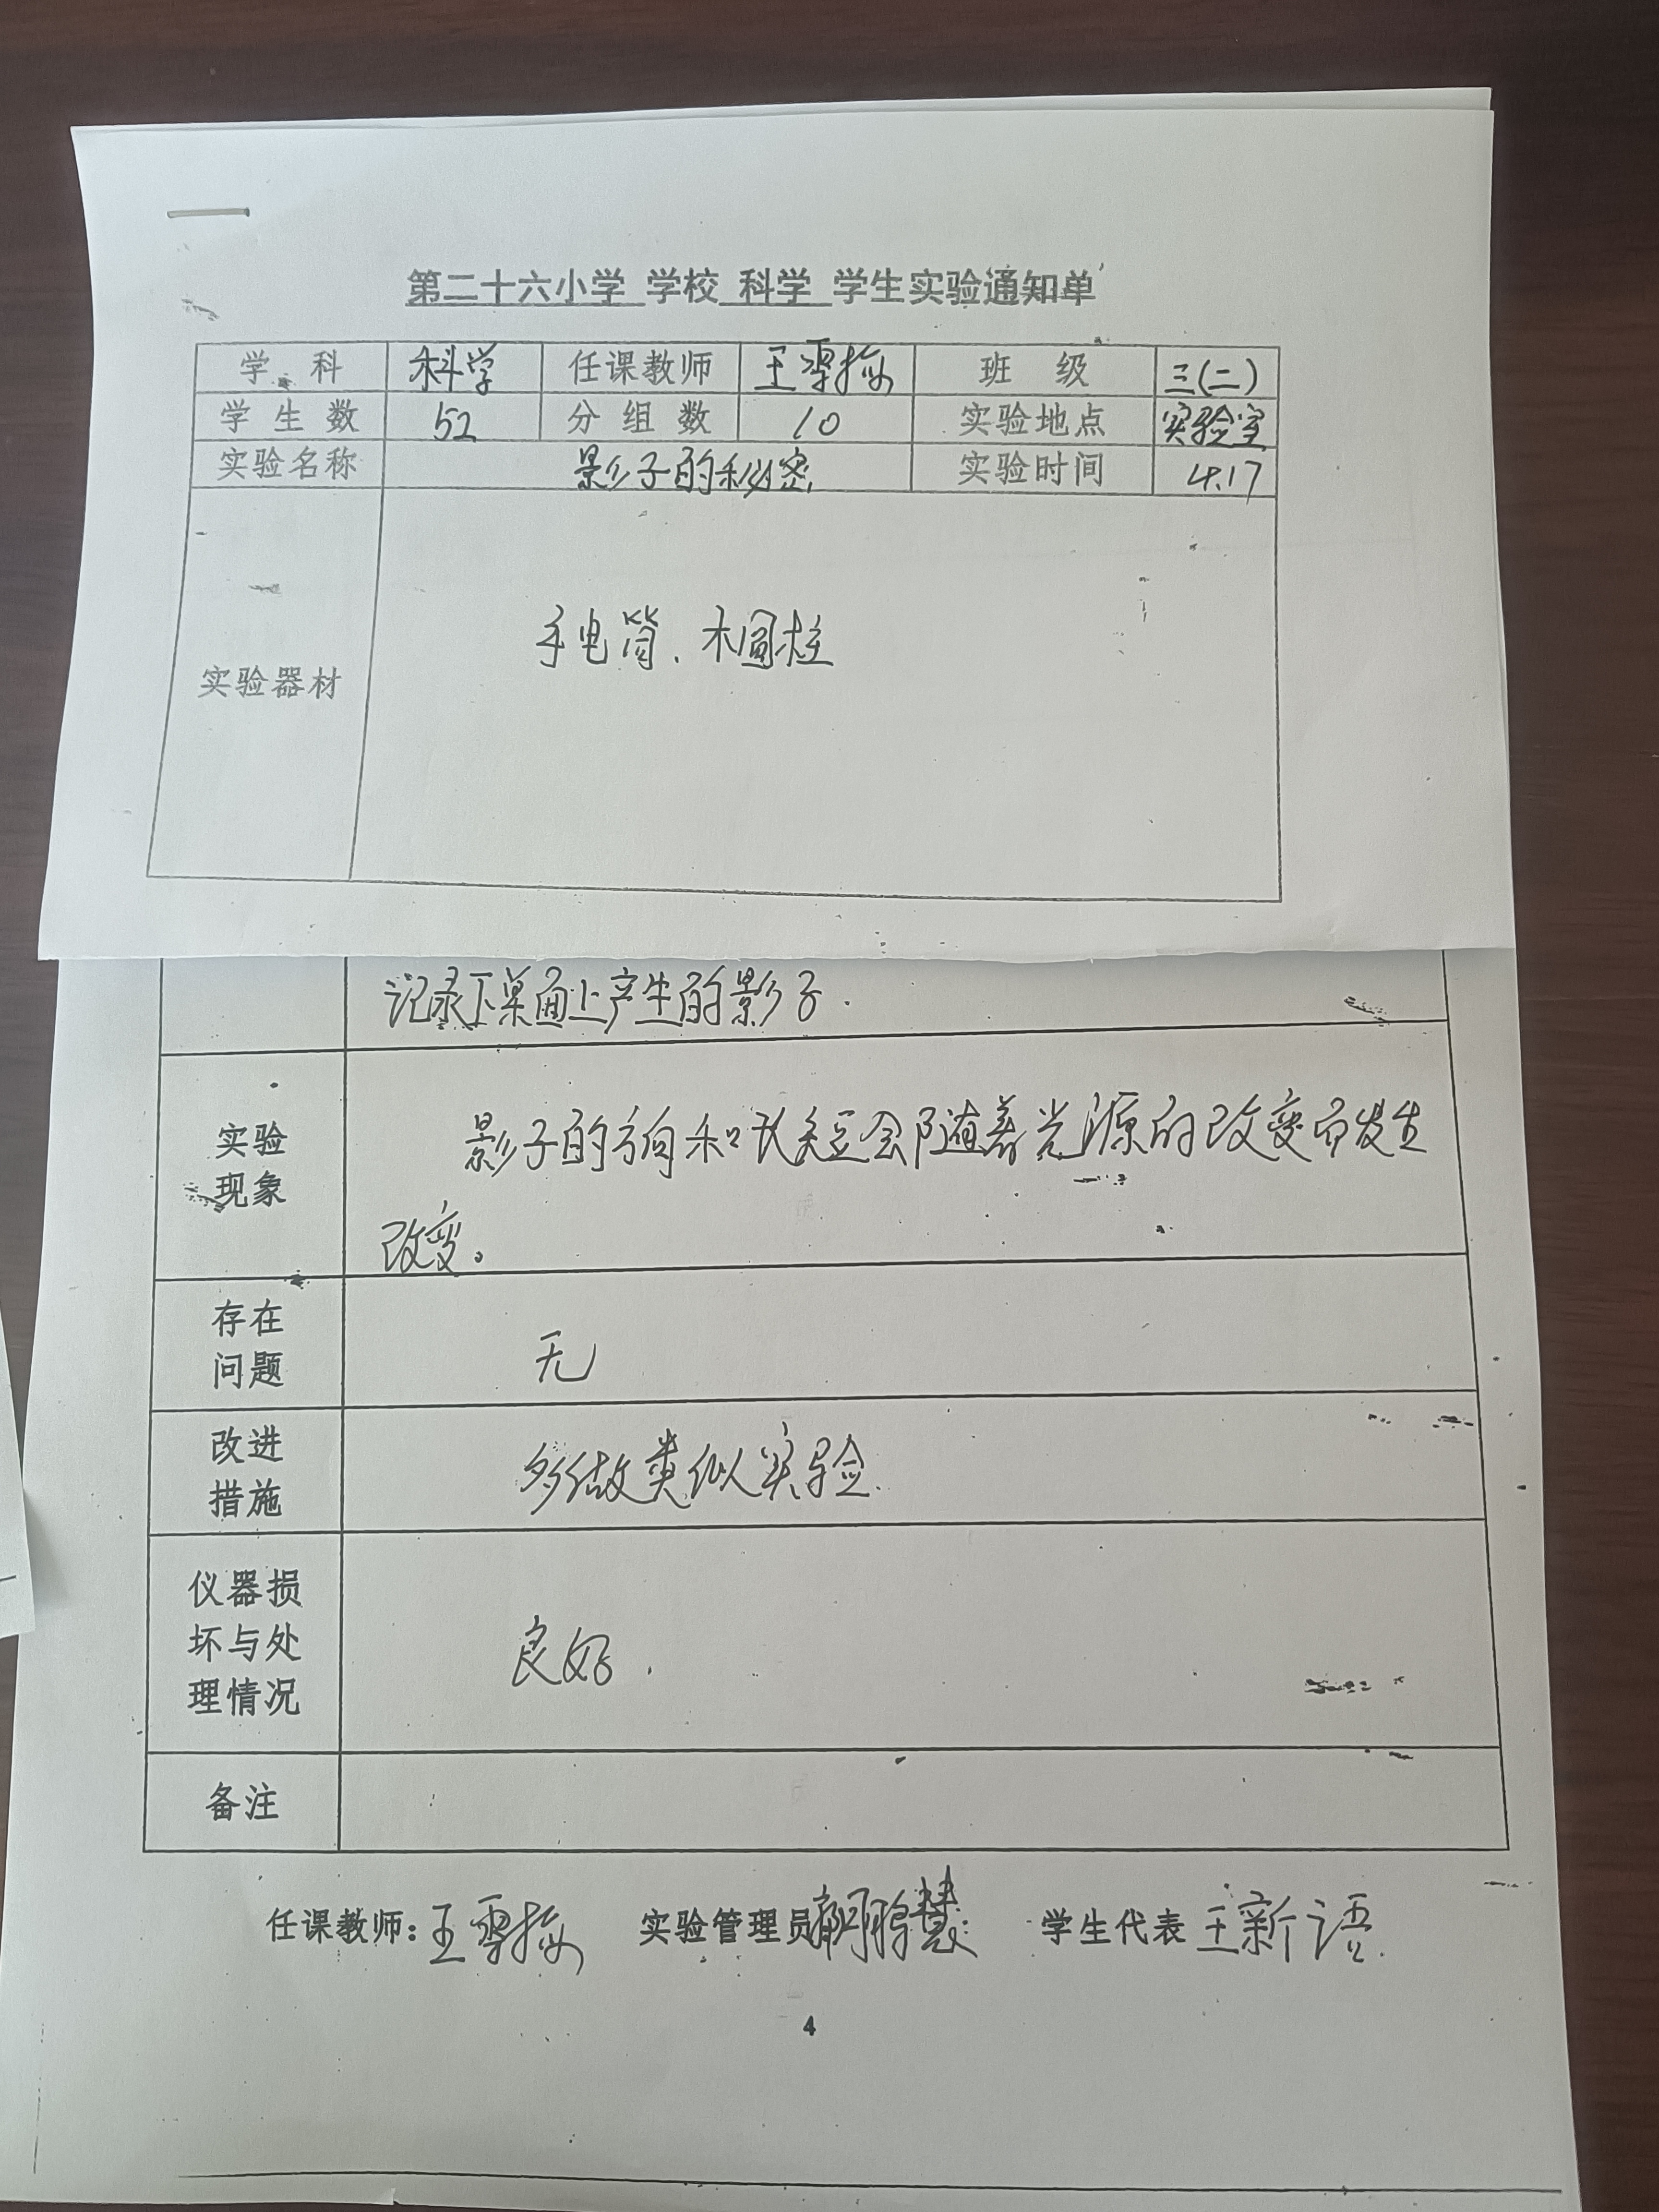 第二十六小学 学校 科学 学生实验通知单
学 科 科学 任课教师 王雪梅 班 级 三(二)
学 生 数 52 分 组 数 10 实验地点 实验室
实验名称 影子的秘密 实验时间 4.17
实验器材 手电筒、木圆柱
记录下桌面上产生的影子.
实验
现象
影子的方向和长短会随着光源的改变而发生
改变。
存在
问题
无
改进
措施
多做类似实验.
仪器损
坏与处
理情况
良好.
备注
任课教师:王雪梅 实验管理员 学生代表 王新语.
4